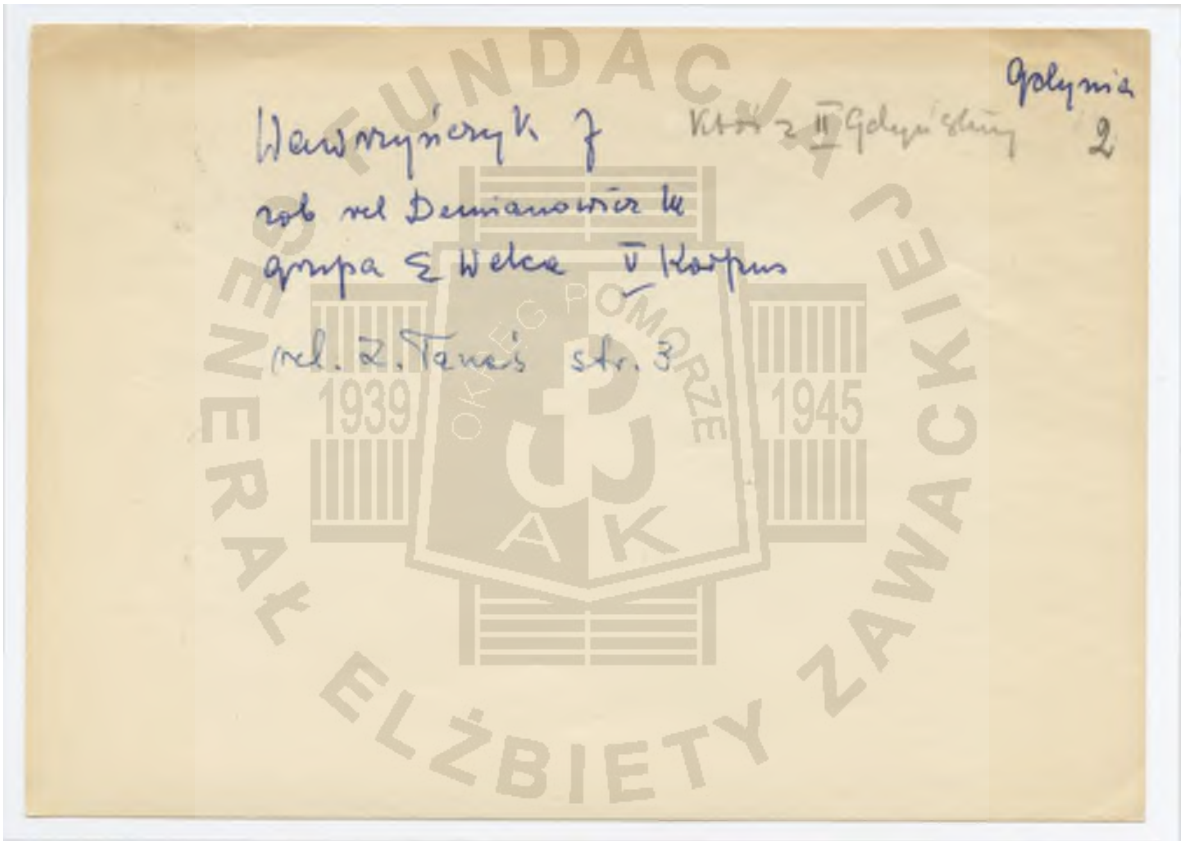 Gdynia
Wawrzyńczyk J
Ktoś z II Gdyńskiej
2
zob rel Demianowicz M
grupa E Welca V Korpus
rel. Z. Tanaś str. 3
FUNDACJA
GENERAŁ ELŻBIETY ZAWACKIEJ
OKRĘG POMORZE
1939
1945
A K